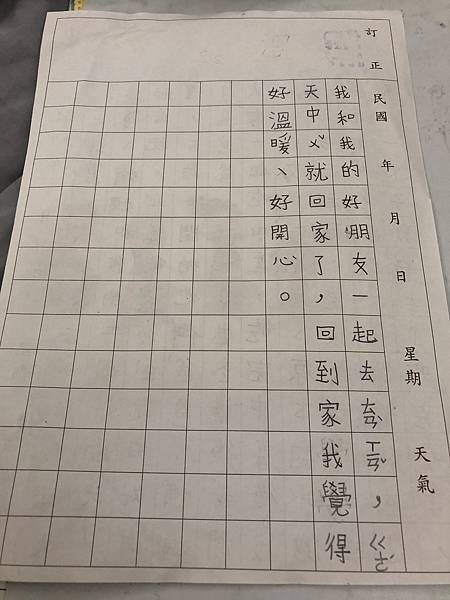 訂正
民國 年 月 日 星期 天氣
我和我的好朋友一起去ㄊㄢˋㄒㄧㄢˇ，ㄍㄜˊ
天中ㄨˇ就回家了，回到家我覺得
好溫暖、好開心。